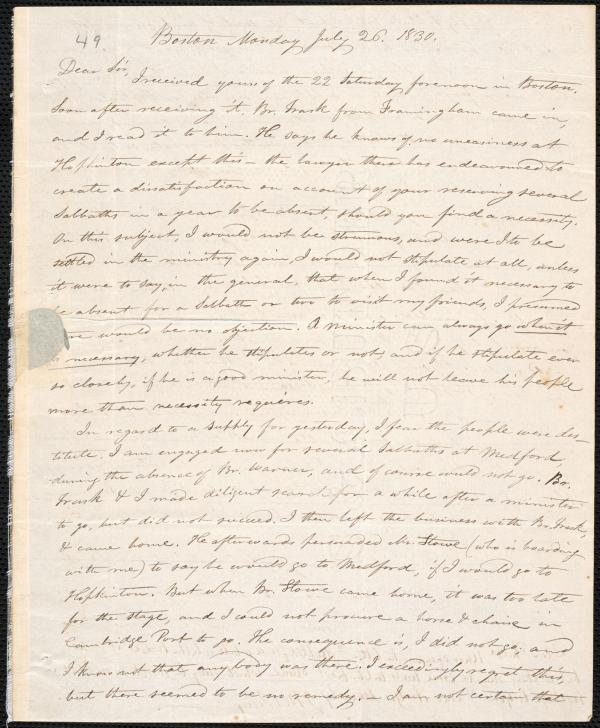 49
Boston Monday July 26. 1830.
Dear Sir,
I received yours of the 22 Saturday forenoon in Boston.
Soon after receiving it, Br. Trask from Framingham came in,
and I read it to him. He says he knows of no uneasiness at
Hopkinton except this – the lawyer there has endeavoured to
create a dissatisfaction on account of your reserving several
Sabbaths in a year to be absent, should you find a necessity.
On this subject, I would not be strenuous, and were I to be
settled in the ministry again, I would not stipulate at all, unless
it were to say, in the general, that when I found it necessary to
be absent for a Sabbath or two to visit my friends, I presumed
there would be no objection. A minister can always go when it
is necessary, whether he stipulates or not, and if he stipulate ever
so closely, if he is a good minister, he will not leave his people
more than necessity requires.
In regard to a supply for yesterday, I fear the people were des-
titute. I am engaged now for several Sabbaths at Medford
during the absence of Br. Warner, and of course could not go. Br.
Trask & I made diligent search for a while after a minister
to go, but did not succeed. I then left the business with Br. Trask,
& came home. He afterwards persuaded Mr. Stowe (who is boarding
with me) to say he would go to Medford, if I would go to
Hopkinton. But when Br. Stowe came home, it was too late
for the stage, and I could not procure a horse & chaise in
Cambridge Port to go. The consequence is, I did not go; and
I know not that any body was there. I exceedingly regret this,
but there seemed to be no remedy. – I am not certain that